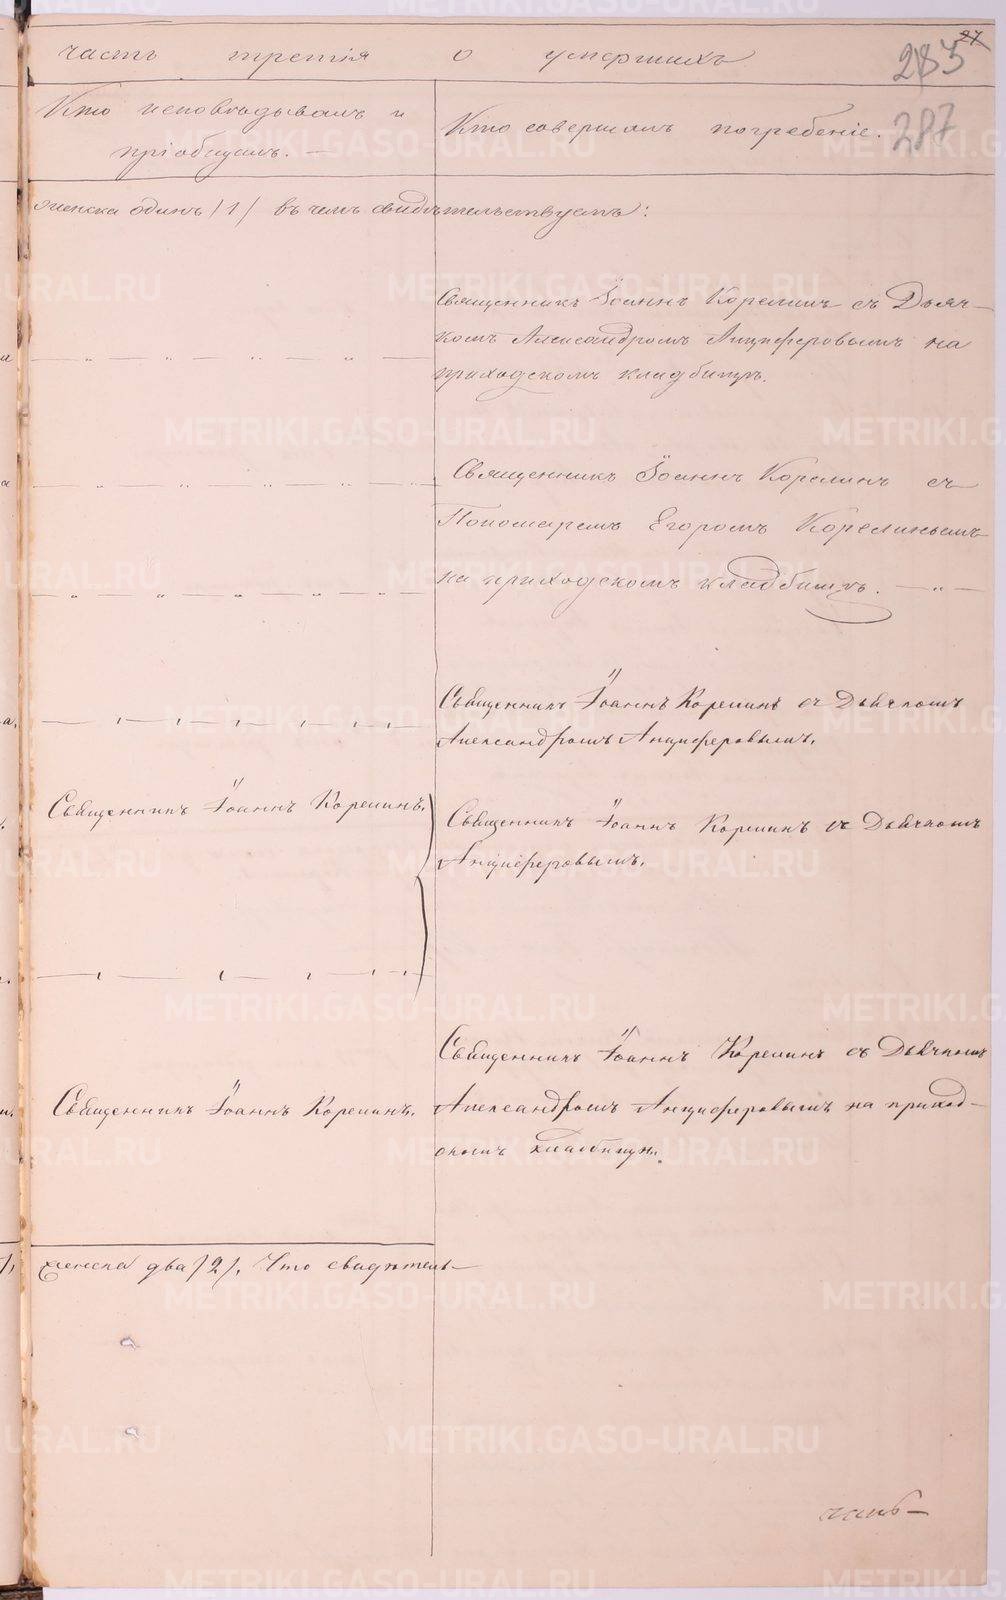 часть третія о умершихъ
27
285
287
Кто исповѣдывалъ и
пріобщалъ.
Кто совершалъ погребеніе.
женска одинъ /1/ въ чемъ свидѣтельствуемъ:
Священникъ Іоаннъ Корелинъ съ Дьяч-
комъ Александромъ Анциферовымъ на
приходскомъ кладбищѣ.
Священникъ Іоаннъ Корелинъ съ
Пономаремъ Егоромъ Корелинымъ
на приходскомъ кладбищѣ.
Священникъ Іоаннъ Корелинъ съ Дьячкомъ
Александромъ Анциферовымъ.
Священникъ Іоаннъ Корелинъ.
Священникъ Іоаннъ Корелинъ съ Дьячкомъ
Анциферовымъ.
Священникъ Іоаннъ Корелинъ съ Дьячкомъ
Священникъ Іоаннъ Корелинъ.
Александромъ Анциферовымъ на приход-
скомъ кладбищѣ.
женска два /2/. Что свидѣтель-
METRIKI.GASO-URAL.RU